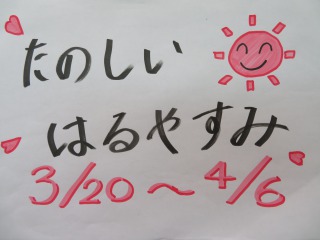 たのしい
はるやすみ
3/20～4/6